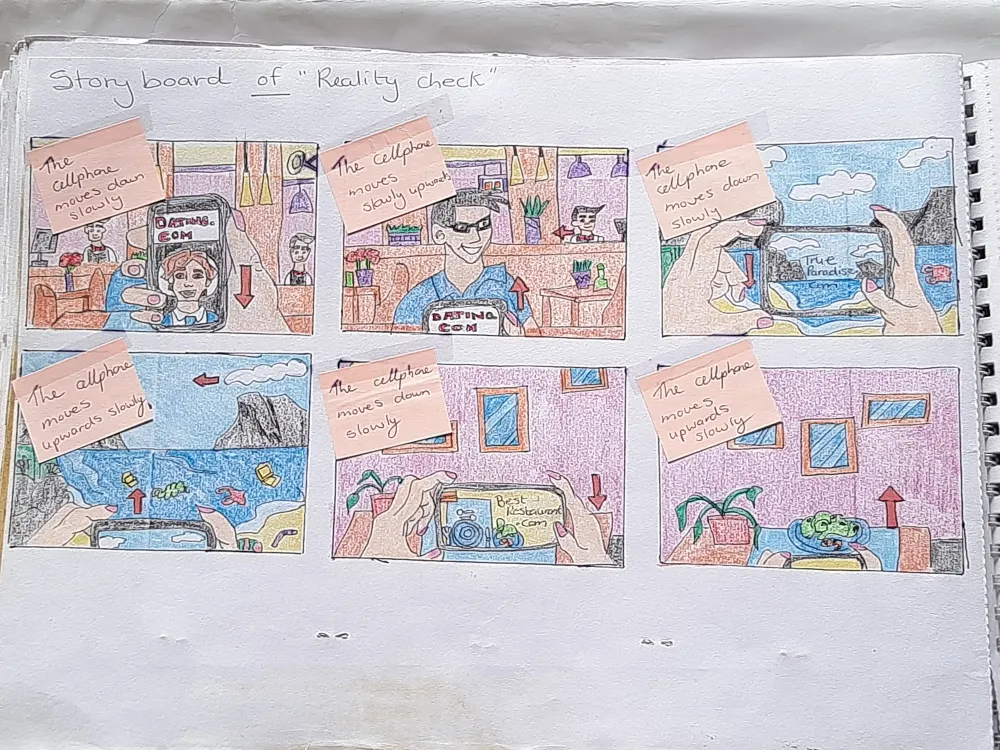 Story board of "Reality check"
The
cellphone
moves down
slowly
DATING.
COM
The cellphone
moves
slowly upwards
DATING
COM
The
cellphone
moves down
slowly
True
Paradise.
com
The cellphone
moves
upwards slowly.
The cellphone
moves down
slowly
Best
Restaurant
.com
The cellphone
moves
upwards
slowly